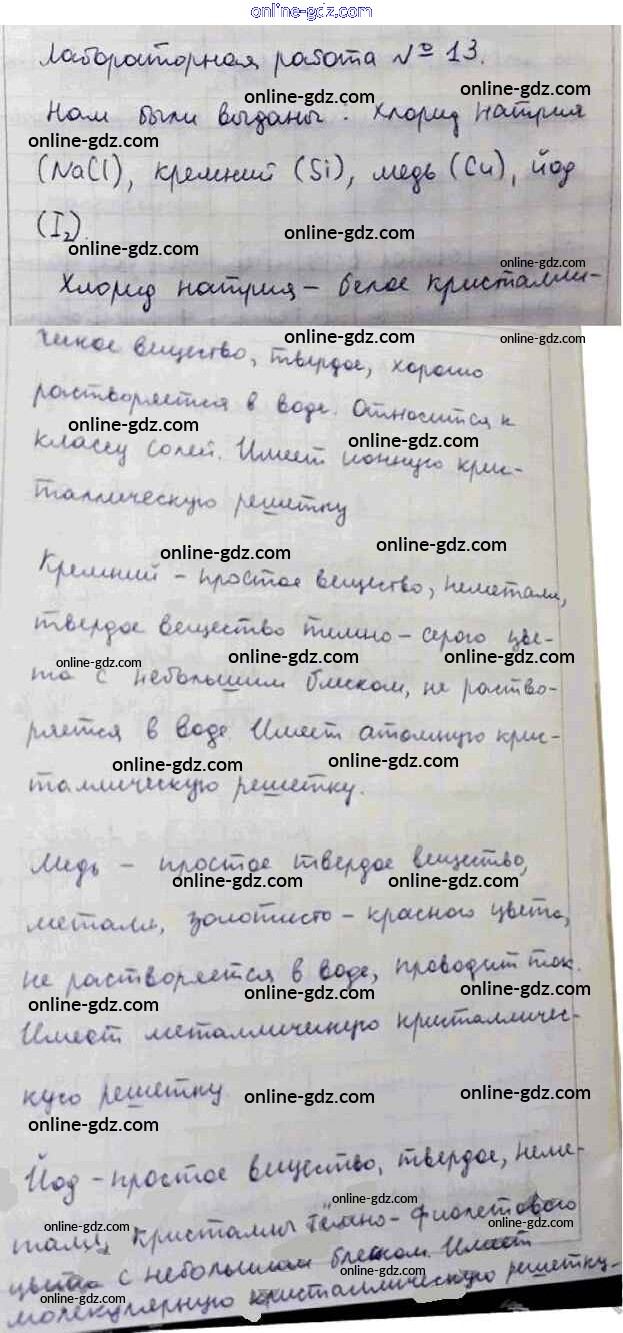 online-gdz.com
Лабораторная работа № 13.
online-gdz.com online-gdz.com
Нам были выданы: хлорид натрия
online-gdz.com
(NaCl), кремний (Si), медь (Cu), йод
(I₂).
online-gdz.com online-gdz.com online-gdz.com
Хлорид натрия – белое кристалли-
online-gdz.com online-gdz.com
ческое вещество, твердое, хорошо
растворяется в воде. Относится к
online-gdz.com online-gdz.com
классу солей. Имеет ионную крис-
таллическую решетку
online-gdz.com online-gdz.com
Кремний – простое вещество, неметалл,
твердое вещество темно-серого цве-
online-gdz.com online-gdz.com online-gdz.com
та с небольшим блеском, не раство-
ряется в воде. Имеет атомную крис-
online-gdz.com online-gdz.com
таллическую решетку.
Медь – простое твердое вещество,
online-gdz.com online-gdz.com
металл, золотисто-красного цвета,
не растворяется в воде, проводит ток.
online-gdz.com online-gdz.com online-gdz.com
Имеет металлическую кристалличес-
кую решетку
online-gdz.com online-gdz.com
online-gdz.com
Йод – простое вещество, твердое, неме-
online-gdz.com
талл, кристаллы тёмно-фиолетового
online-gdz.com online-gdz.com
цвета с небольшим блеском. Имеет
online-gdz.com
молекулярную кристаллическую решетку.
online-gdz.com online-gdz.com online-gdz.com